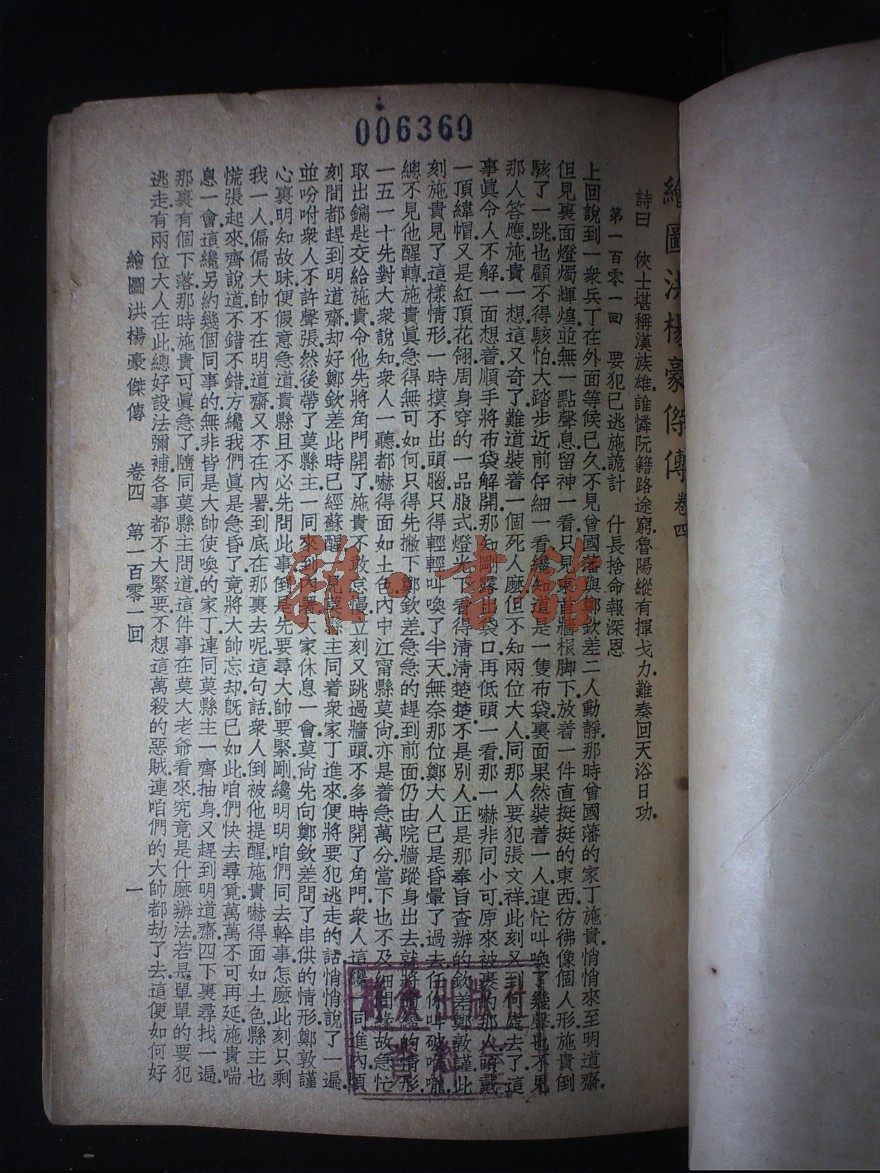 006360
繪圖洪楊豪傑傳 卷四
詩曰 俠士堪稱漢族雄誰憐阮籍路途窮魯陽縱有揮戈力難奏回天浴日功
第一百零一回 要犯已逃施詭計 什長捨命報深恩
上回說到一衆兵丁在外面等候已久不見曾國藩與鄭欽差二人動靜那時曾國藩的家丁施貴悄悄來至明道齋
但見裏面燈燭輝煌並無一點聲息留神一看只見東首牆根脚下放着一件直挺挺的東西彷彿像個人形施貴倒
駭了一跳也顧不得駭怕大踏步近前仔細一看纔知道是一隻布袋裏面果然裝着一人連忙叫喚了幾聲也不見
那人答應施貴一想這又奇了難道裝着一個死人麽但不知兩位大人同那人要犯張文祥此刻又到何處去了這
事眞令人不解一面想着順手將布袋解開那知剛露出袋口再低頭一看那一嚇非同小可原來被裹的那人頭戴
一頂緯帽又是紅頂花翎周身穿的一品服式燈光下看得清清楚楚不是別人正是那奉旨查辦的欽差鄭敦謹此
刻施貴見了這樣情形一時摸不出頭腦只得輕輕叫喚了半天無奈那位鄭大人已是昏暈了過去任你叫破喉嚨
總不見他醒轉施貴眞急得無可如何只得先撇下鄭欽差急急的趕到前面仍由院牆蹤身出去就將的情形
一五一十先對大衆說知衆人一聽都嚇得面如土色內中江甯縣莫尙亦是着急萬分當下也不及細問緣故急忙
取出鑰匙交給施貴令他先將角門開了施貴不敢怠慢立刻又跳過牆頭不多時開了角門衆人這纔一同進內頃
刻間都趕到明道齋却好鄭欽差此時已經蘇醒見莫縣主同着衆家丁進來便將要犯逃走的話悄悄說了一遍
並吩咐衆人不許聲張然後帶了莫縣主一同來到內署大家休息一會莫尙先向鄭欽差問了串供的情形鄭敦謹
心裏明知故昧便假意急道貴縣且不必先問此事倒是先要尋大帥要緊剛纔明明咱們同去幹事怎麽此刻只剩
我一人偏偏大帥不在明道齋又不在內署到底在那裏去呢這句話衆人倒被他提醒施貴嚇得面如土色縣主也
慌張起來齊說道不錯不錯方纔我們眞是急昏了竟將大帥忘却旣已如此咱們快去尋覓萬萬不可再延施貴喘
息一會這纔另約幾個同事的無非皆是大帥使喚的家丁連同莫縣主一齊抽身又趕到明道齋四下裏尋找一遍
那裏有個下落那時施貴可眞急了隨同莫縣主問道這件事在莫大老爺看來究竟是什麽辦法若是單單的要犯
逃走有兩位大人在此總好設法彌補各事都不大緊要不想這萬殺的惡賊連咱們的大帥都劫了去這便如何好
繪圖洪楊豪傑傳 卷四 第一百零一回 一